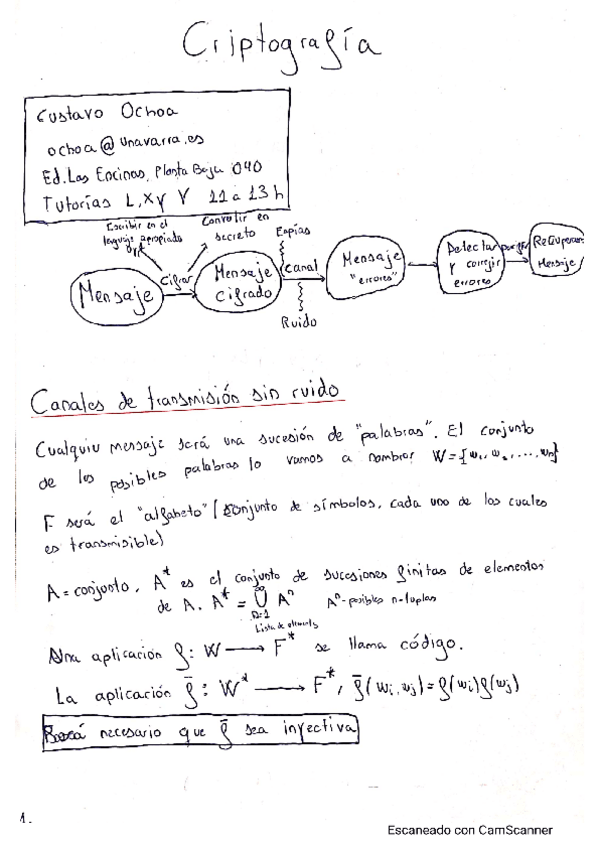 Criptografía
Gustavo Ochoa
ochoa@unavarra.es
Ed. Las Encinas, Planta Baja 040
Tutorías L, X y V 11 a 13 h
Escribir en el
lenguaje apropiado
Convertir en
secreto
Espías
Mensaje
Cifrar
Mensaje
cifrado
Canal
Ruido
Mensaje
"errores"
Detectar
y corregir
errores
Recuperar
Mensaje
Canales de transmisión sin ruido
Cualquier mensaje será una sucesión de "palabras". El conjunto
de las posibles palabras lo vamos a nombrar W = {w₁, w₂, ..., wₙ}
F será el "alfabeto" (conjunto de símbolos, cada uno de los cuales
es transmisible)
A = conjunto, A* es el conjunto de sucesiones finitas de elementos
de A. A* = ∞∪n=1 Aⁿ Aⁿ - posibles n-tuplas
Lista de elements
Una aplicación f: W → F* se llama código.
La aplicación f̄: W* → F*, f̄(wᵢ, wⱼ) = f(wᵢ)f(wⱼ)
necesario que f̄ sea inyectiva
1.
Escaneado con CamScanner